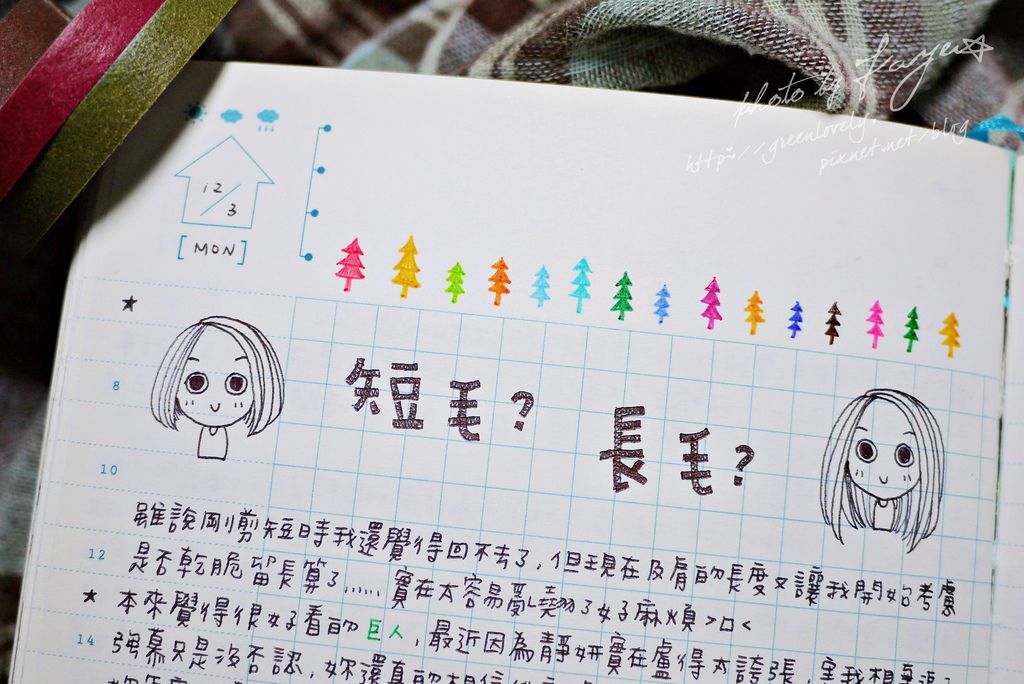 photo by Fuyeu
http://greenlovely.
pixnet.net/blog
12/3
[MON]
短毛?
長毛?
8
10
12
14
雖說剛剪短時我還覺得回不去了,但現在及肩的長度又讓我開始考慮
是否乾脆留長算了......實在太容易亂翹了好麻煩>口<
本來覺得很好看的巨人,最近因為靜妍實在盧得太誇張,害我相
強慕只是沒否認,妳還真的相信